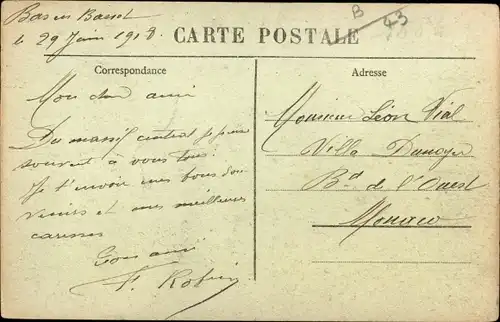 Bas en Basset
le 29 Juin 1918.
B 43
CARTE POSTALE
Correspondance
Adresse
Mon cher ami
Du massif central je pense
souvent à vous tous.
Je t'envoie mes bons sou
venirs et mes meilleures
caresses
Ton ami
F. Robin
Monsieur Léon Vial
Villa
Bd de l'Ouest
Monaco